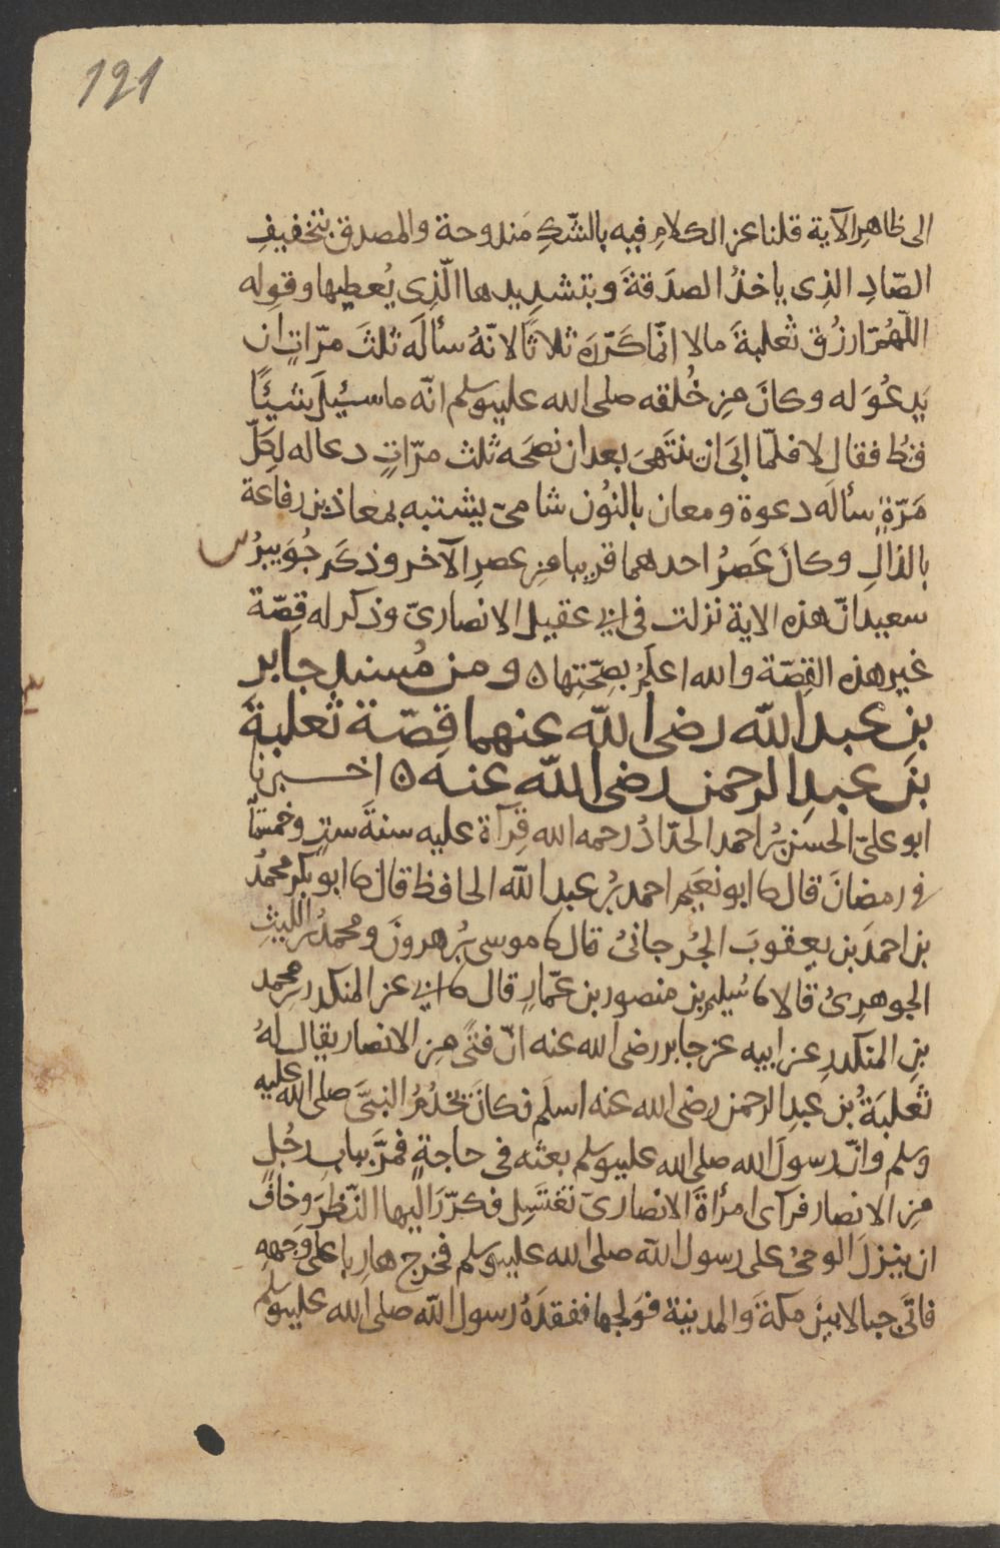 121
الى ظاهِرِ الآية قلنا عن الكلامِ فيه بالشّكِ مَندوحة والمصدق بتخفيفِ
الصّادِ الذِى ياخذُ الصدَقةَ وبتشدِيدها الّذِى يُعطِيها وقوله
اللّهُمّ ارزُق ثعلبةَ مالا انمّا كَرّرَه ثلاثًا لانّهُ سألَه ثلثَ مرّاتٍ ان
يَدعُوَ له وكانَ مِن خُلقه صلى الله عليه وسلم انّه ما سُئِلَ شيئًا
قطُ فقال لا فلمّا ابَى ان ينتَهىَ بعد ان نصَحَه ثلث مرّاتٍ دعا له لِكلّ
مَرّةٍ سألَه دعوة ومعان بالنُون شامىّ يشتبه بمعاذ بن رفاعَة
بالذالِ وكانَ عَصرُ احدهما قريبا مِن عصرِ الآخر وذكَر جُوَيبرُ بن
سعيد انّ هذه الاية نزلت فى ابى عقيل الانصارىّ وذكر له قِصّة
غير هذه القِصّة والله اعلَمُ بصِحّتِها ٥ ومن مُسند جابر
بنِ عبدِ اللّه رضى اللّه عنهما قِصّة ثعلبةَ
بنَ عبدِ الرحمن رضى اللّه عنه ٥ اخبرنا
ابو علىّ الحسن بنُ احمد الحدّادُ رحمه الله قِرآة عليه سنةَ ستٍ وخمسمائة
فى رمضانَ قال نا ابو نعَيم احمد بنُ عبدِ اللّه الحافظ قال نا ابو بكر محمدُ
بن احمدَ بن يعقوبَ الجُرجانىُ قال نا موسى بنُ هرونَ ومحمدُ بن الليثِ
الجوهرِىُ قالا نا سُليم بن منصور بن عمّارٍ قال نا ابى عن المنكدر بنِ محمد
بنِ المنكدرِ عن ابيه عن جابر رضى الله عنه انّ فتًى مِن الانصار يقال لهُ
ثعلبَةُ بن عبدِ الرحمن رضى الله عنه اسلَم فكانَ يخدُمُ النبىَّ صلى الله عليه
وسلم وانّ رسولَ الله صلى الله عليه وسلم بعثه فى حاجةٍ فمَرَّ ببابِ رجُلٍ
مِن الانصار فرآى امرأةَ الانصارىّ تغتَسِل فكرّرَ اليها النّظرَ وخافَ
ان ينزلَ الوحىُ على رسول اللّه صلى الله عليه وسلم فخرج هارِبا على وجهه
فاتَى جبالا بينَ مكةَ والمدينة فوَلجها ففقدَهُ رسول اللّه صلى الله عليه وسلم